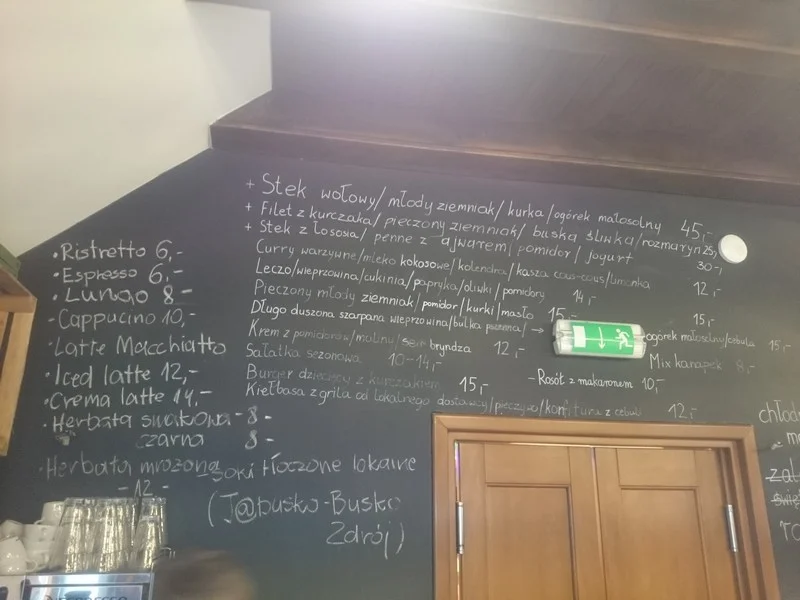 + Stek wołowy/młody ziemniak/kurka/ogórek małosolny 45,-
+ Filet z kurczaka/pieczony ziemniak/buska śliwka/rozmaryn 25,-
+ Stek z łososia/penne z ajwarem/pomidor/jogurt 30-,
Curry warzywne/mleko kokosowe/kolendra/kasza cous-cous/limonka 12,-
Leczo/wieprzowina/cukinia/papryka/oliwki/pomidory 14,-
Pieczony młody ziemniak/pomidor/kurki/masło 15,- 15,-
Długo duszona szarpana wieprzowina/bułka pszenna/→ ogórek małosolny/cebula 15,-
Krem z pomidorów/maliny/ser bryndza 12,- Mix kanapek 8,-
Sałatka sezonowa 10-14,-
Burger dziecięcy z kurczakiem 15,- - Rosół z makaronem 10,-
Kiełbasa z grila od lokalnego dostawcy/pieczywo/konfitura z cebuli 12,-
• Ristretto 6,-
• Espresso 6,-
• Lungo 8-
• Cappucino 10,-
• Latte Macchiatto
• Iced latte 12,-
• Crema latte 14,-
• Herbata smakowa - 8-
czarna 8-
• Herbata mrożona
- 12 -
- soki tłoczone lokalne
(J@busko-Busko
Zdrój)
chłod